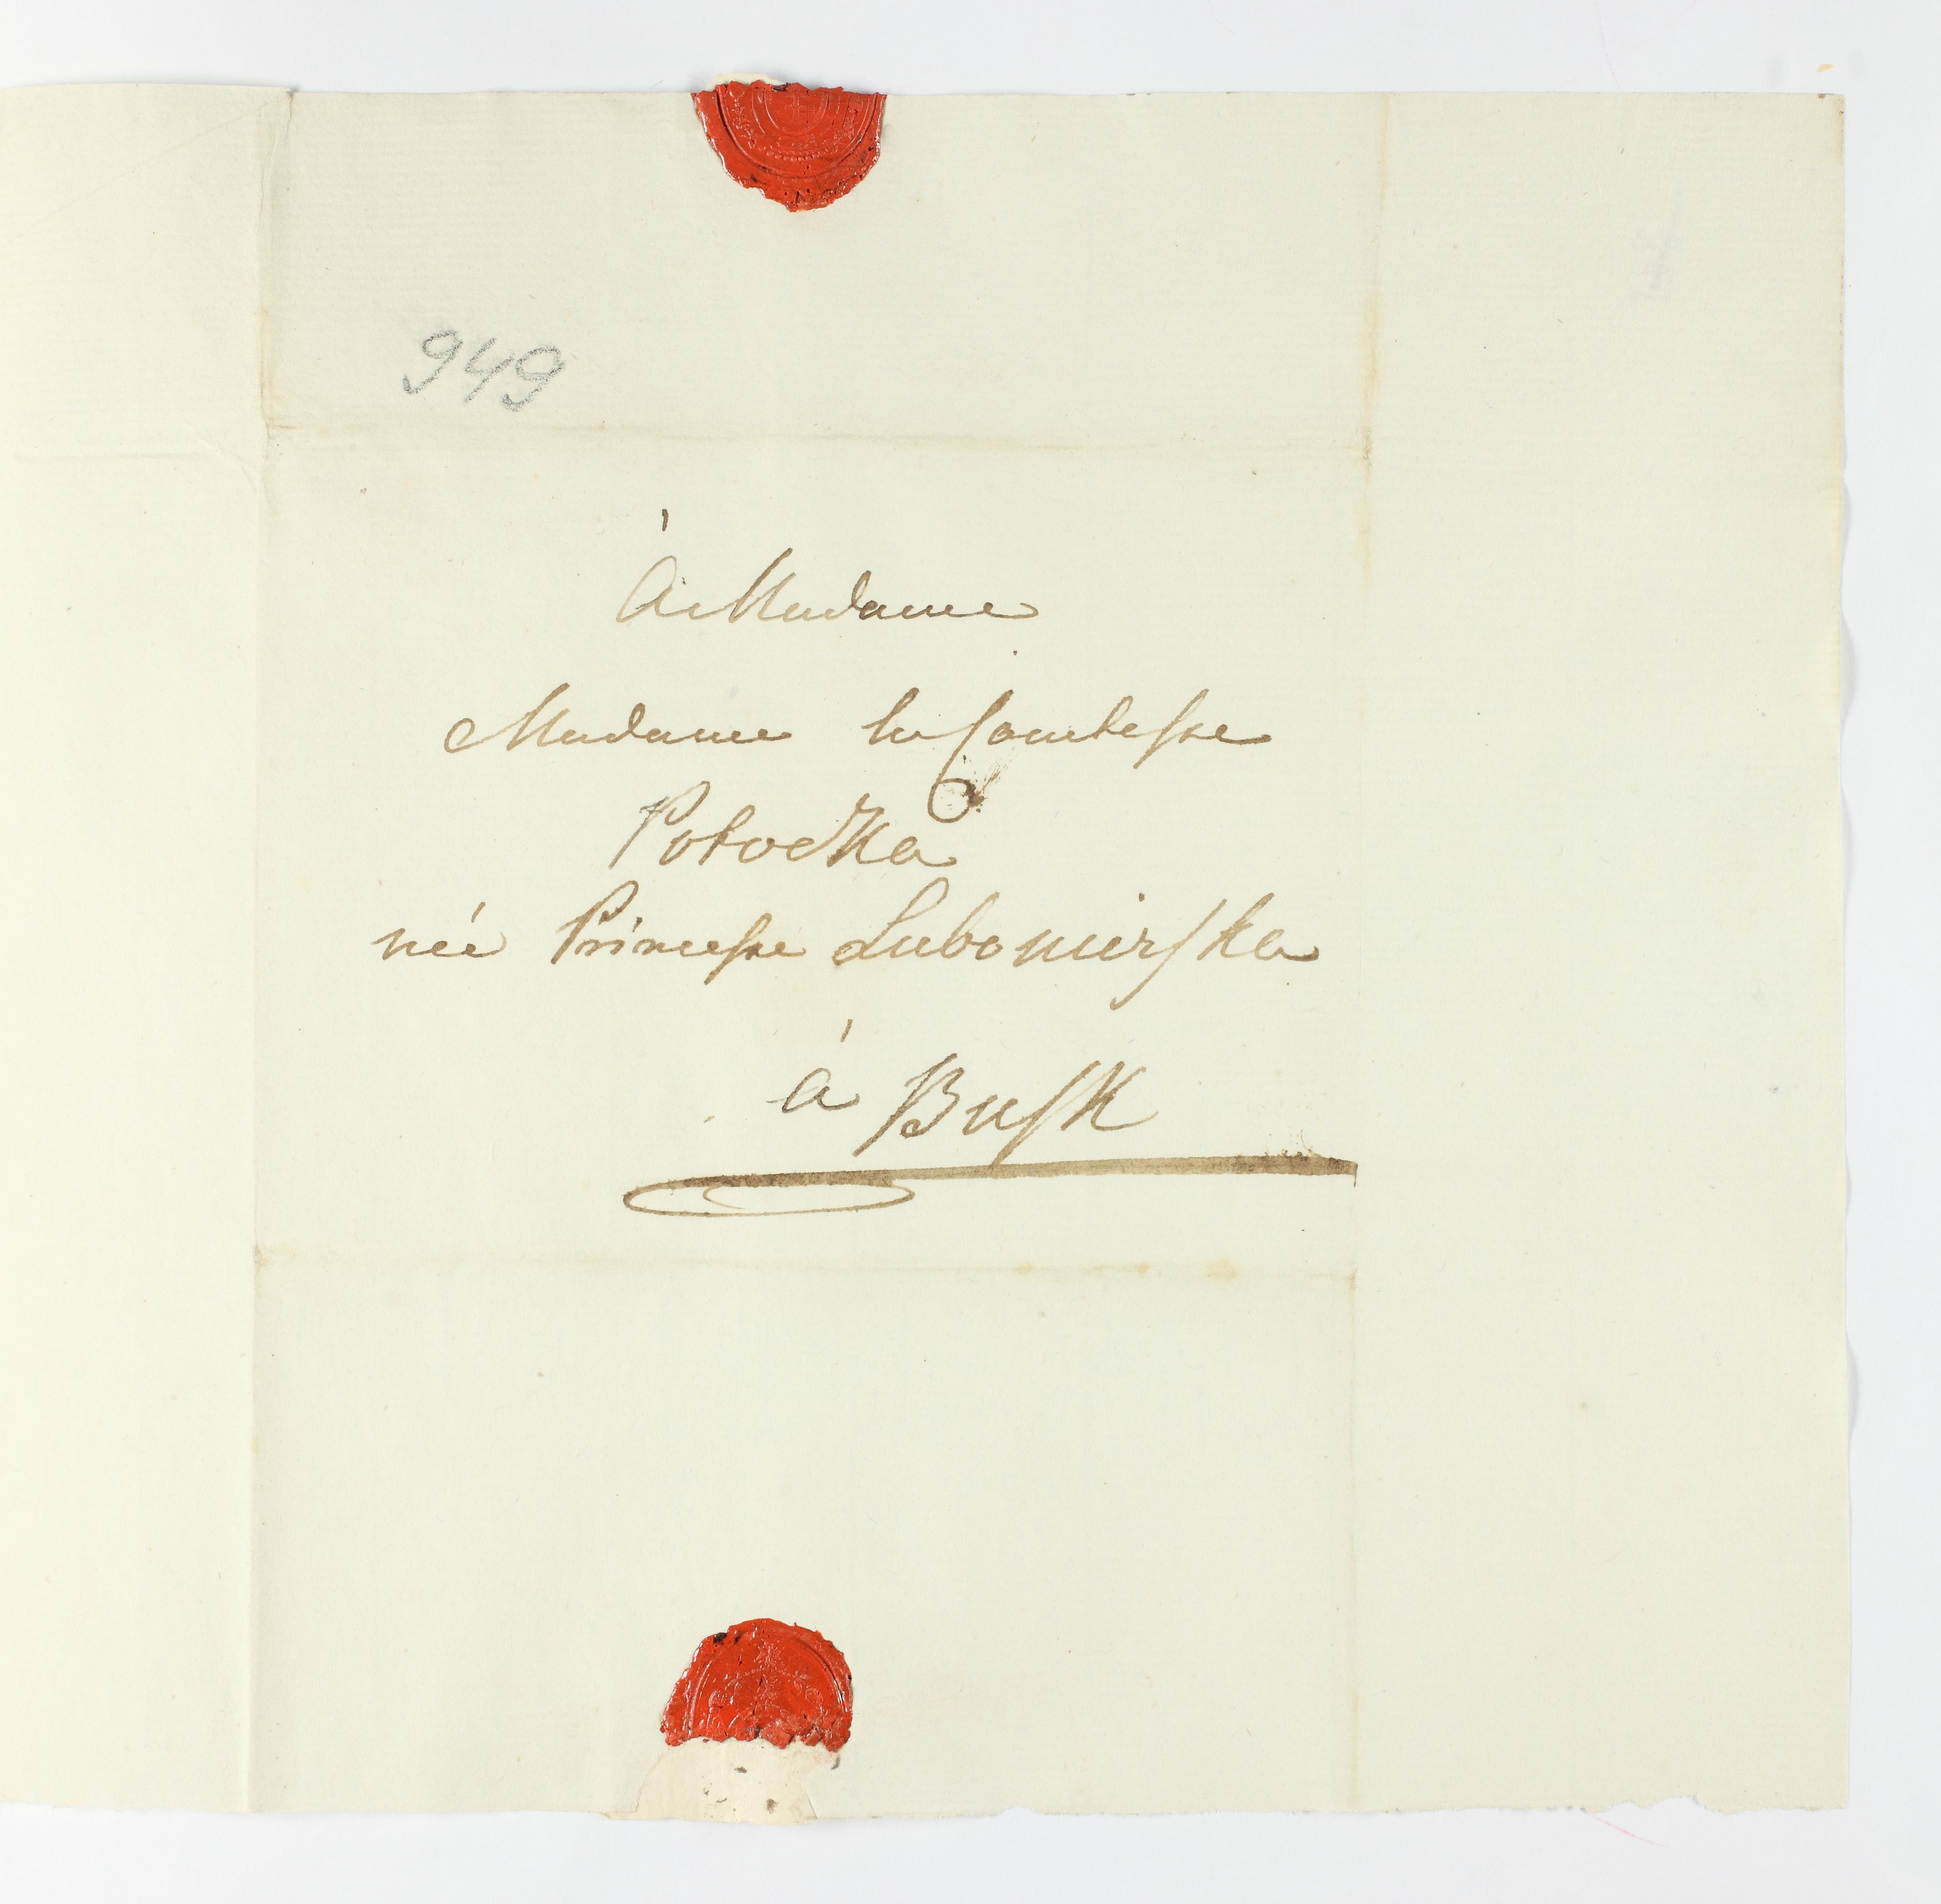 949
À Madame
Madame la Comtesse
Potocka
née Princesse Lubomirska
à Busk